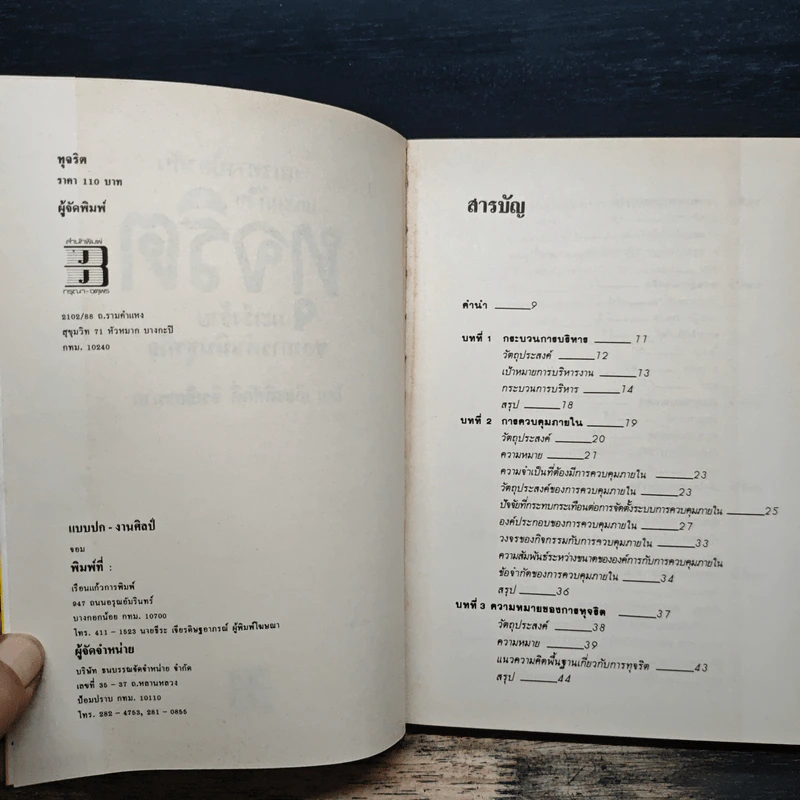 ทุจริต
ราคา 110 บาท
ผู้จัดพิมพ์
สำนักพิมพ์
กรุณา-จตุพร
2102/88 ถ.รามคำแหง
สุขุมวิท 71 หัวหมาก บางกะปิ
กทม. 10240
แบบปก - งานศิลป์
จอม
พิมพ์ที่ :
เรือนแก้วการพิมพ์
947 ถนนอรุณอัมรินทร์
บางกอกน้อย กทม. 10700
โทร. 411 - 1523 นายธีระ เจียรดิษฐอาภรณ์ ผู้พิมพ์โฆษณา
ผู้จัดจำหน่าย
บริษัท ธนบรรณจัดจำหน่าย จำกัด
เลขที่ 35 - 37 ถ.หลานหลวง
ป้อมปราบ กทม. 10110
โทร. 282 - 4753, 281 - 0855
สารบัญ
คำนำ ____9
บทที่ 1 กระบวนการบริหาร ____11
วัตถุประสงค์ ____12
เป้าหมายการบริหารงาน ____13
กระบวนการบริหาร ____14
สรุป ____18
บทที่ 2 การควบคุมภายใน ____19
วัตถุประสงค์ ____20
ความหมาย ____21
ความจำเป็นที่ต้องมีการควบคุมภายใน ____23
วัตถุประสงค์ของการควบคุมภายใน ____23
ปัจจัยที่กระทบกระเทือนต่อการจัดตั้งระบบการควบคุมภายใน ____25
องค์ประกอบของการควบคุมภายใน ____27
วงจรของกิจกรรมกับการควบคุมภายใน ____33
ความสัมพันธ์ระหว่างขนาดขององค์การกับการควบคุมภายใน
ข้อจำกัดของการควบคุมภายใน ____34
สรุป ____36
บทที่ 3 ความหมายของการทุจริต ____37
วัตถุประสงค์ ____38
ความหมาย ____39
แนวความคิดพื้นฐานเกี่ยวกับการทุจริต ____43
สรุป ____44